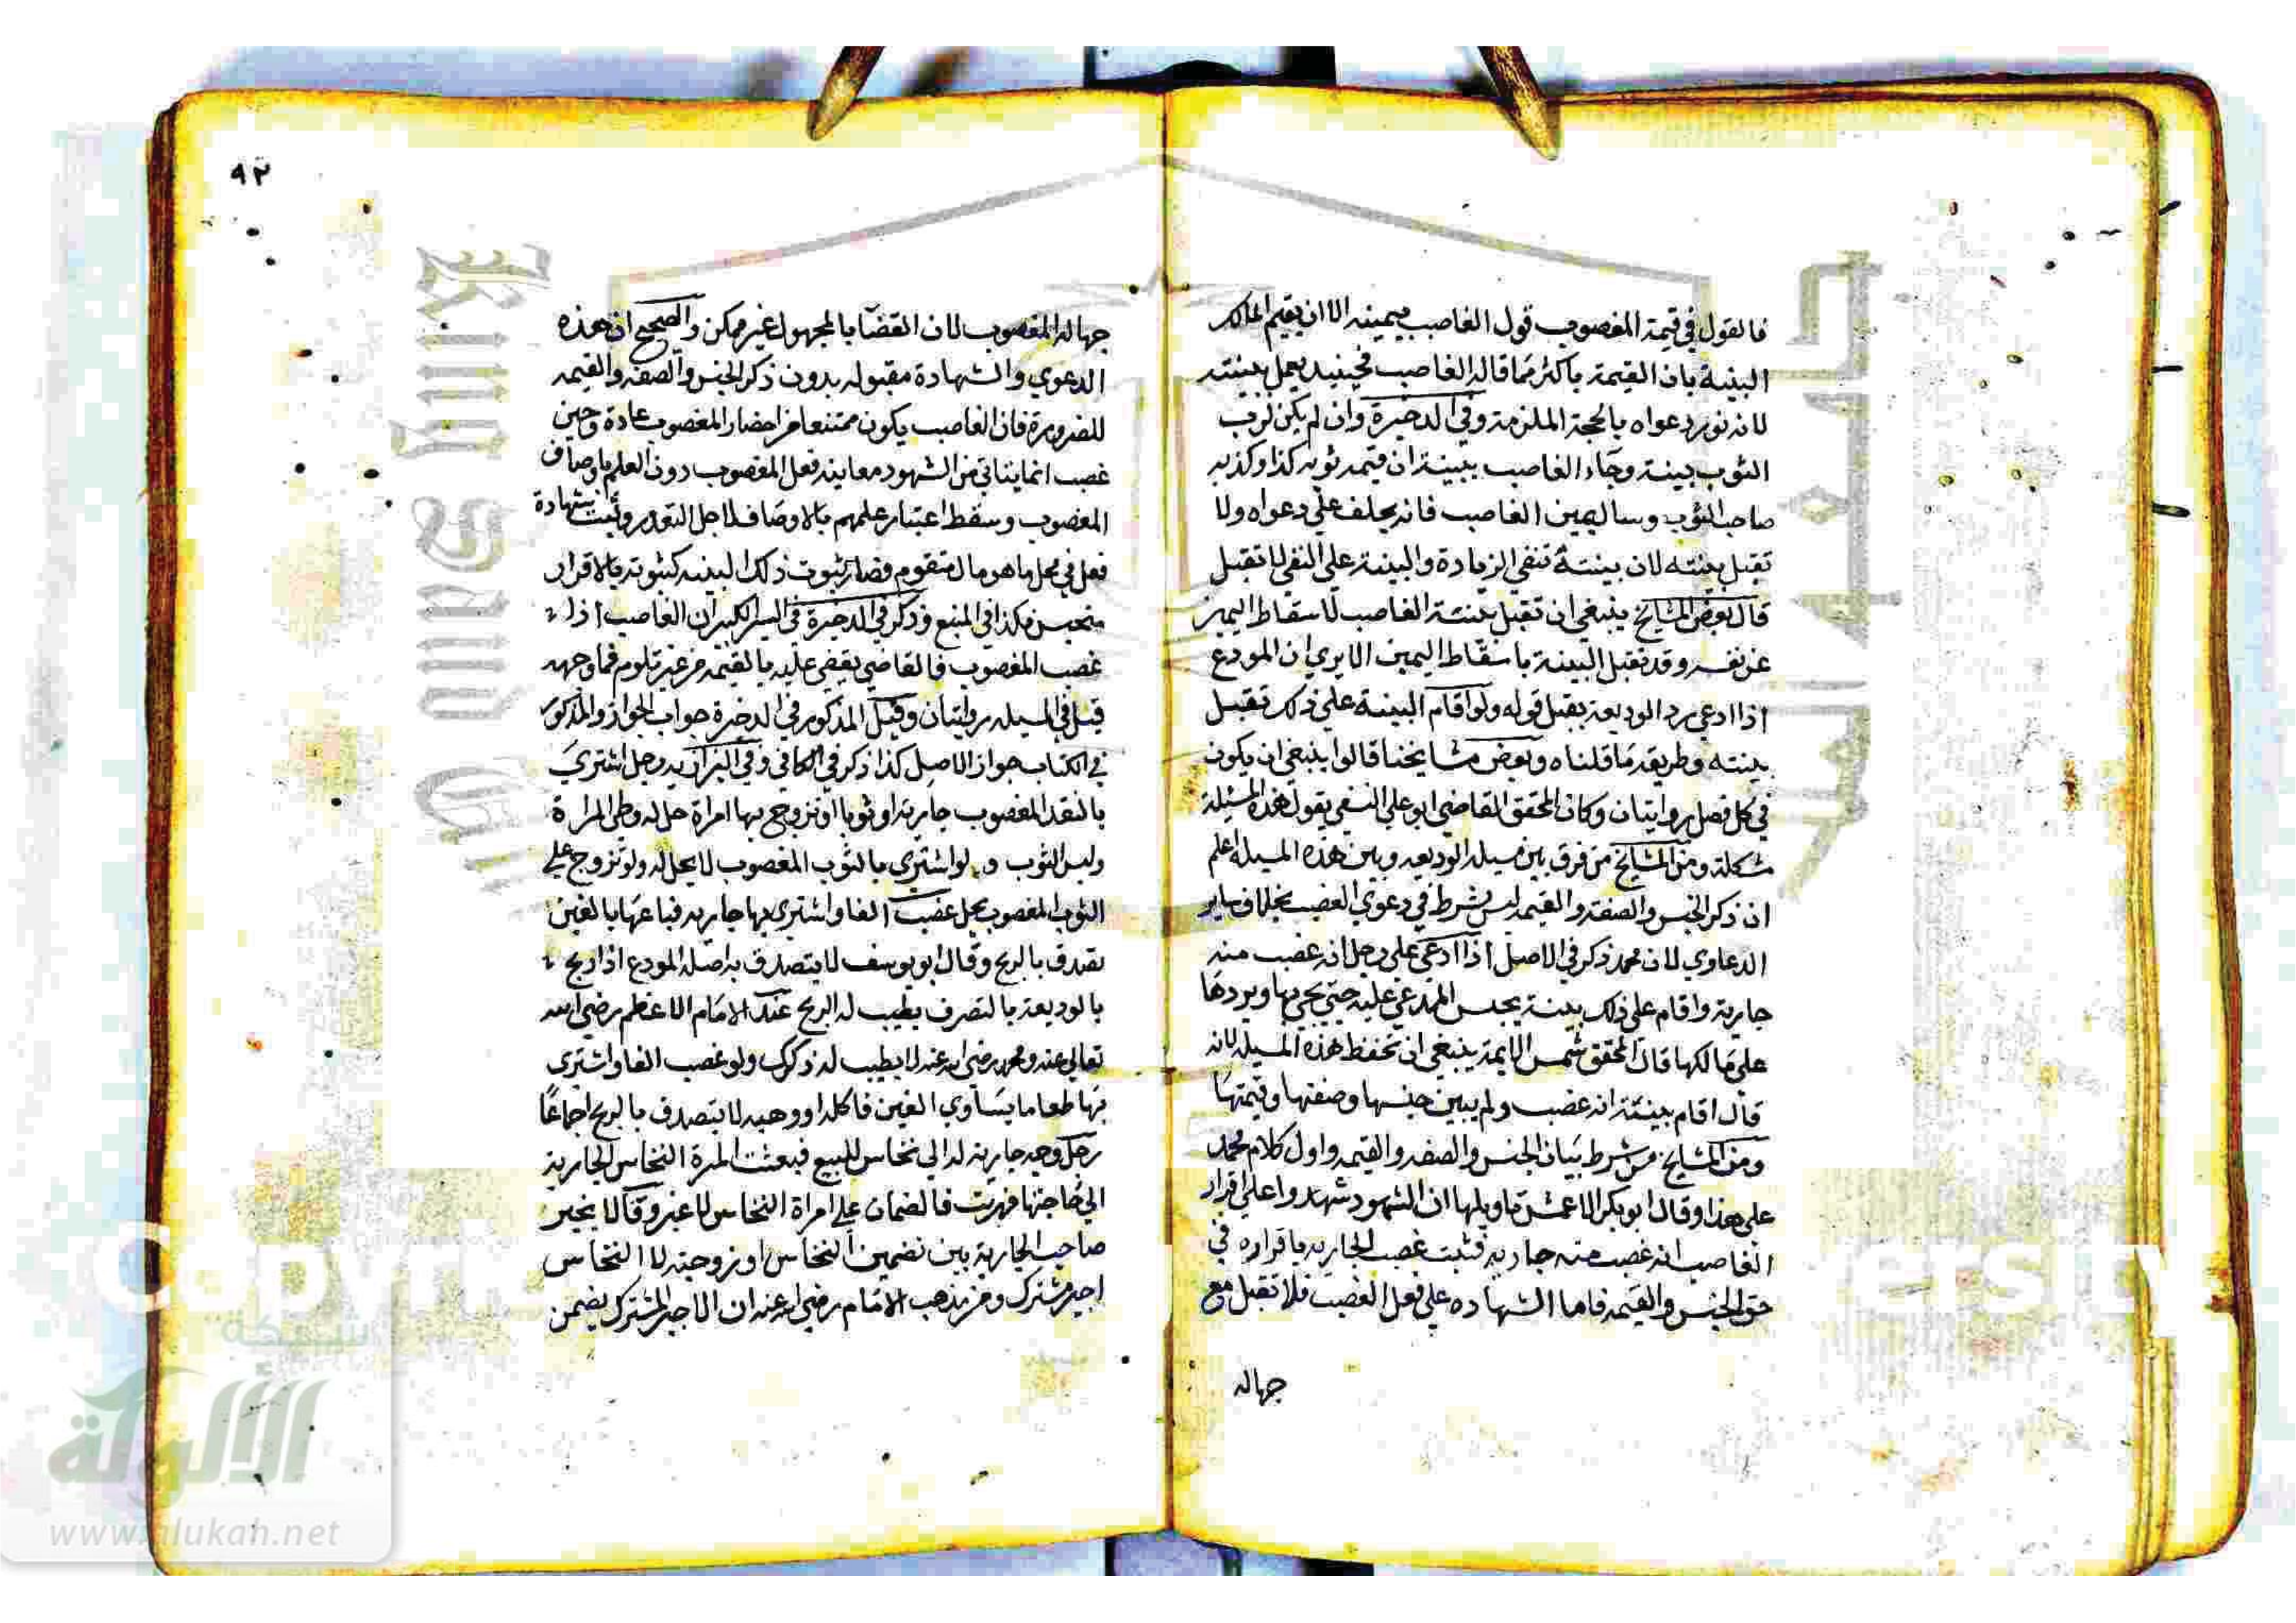 فالقول في قيمة المغصوب قول الغاصب بيمينه الا ان يقيم المالك
البينة بان القيمة باكثر مما قاله الغاصب فحينيذ يعمل ببينته
لانه نور دعواه بالحجة الملزمة وفي الدخيرة وان لم يكن لرب
الثوب بينة وجاء الغاصب ببينة ان قيمة ثوبه كذا وكذبه
صاحب الثوب وسال يمين الغاصب فانه يحلف على دعواه ولا
تقبل بينته لان بينتة تنفي الزيادة والبينة على النفي لا تقبل
قال بعض المشايخ ينبغي ان تقبل بينتة الغاصب لاسقاط اليمين
عن نفسه وقد تقبل البينة باسقاط اليمين الا يري ان المودع
اذا ادعي رد الوديعة يقبل قوله ولو اقام البينة على ذلك تقبل
بينته وطريقه ما قلناه وبعض مشايخنا قالوا ينبغي ان يكون
في كل فصل روايتان وكان المحقق القاضي ابو علي النسفي يقول هذه المسيلة
مشكلة ومن المشايخ من فرق بين مسيلة الوديعه وبين هذه المسيله اعلم
ان ذكر الجنس والصفة والقيمه ليس بشرط في دعوي الغصب بخلاف ساير
الدعاوي لان محمد ذكر في الاصل اذا ادعى على رجل انه غصب منه
جارية واقام على ذلك بينة يحبس المدعي عليه حتي يجي بها ويردها
على مالكها قال المحقق شمس الايمة ينبغي ان تحفظ هذه المسيله لانه
قال اقام بينتة انه غصب ولم يبين جنسها وصفتها وقيمتها
ومن المشايخ من شرط بيان الجنس والصفه والقيمه واول كلام محمد
على هذا وقال ابو بكر الاعمش تاويلها ان الشهود شهدوا على اقرار
الغاصب انه غصب منه جاريه فثبت غصب الجاريه باقراره في
حق الجنس والقيمه فاما الشهاده على فعل الغصب فلا تقبل مع
جهاله
٩٢
جهالة المغصوب لان القضا بالمجهول غير ممكن والصحيح ان هذه
الدعوي والشهادة مقبوله بدون ذكر الجنس والصفه والقيمه
للضرورة فان الغاصب يكون ممتنعا من احضار المغصوب عادة وحين
غصب انما يتاتي من الشهود معاينه فعل المغصوب دون العلم باوصاف
المغصوب وسقط اعتبار علمهم بالاوصاف لاجل التعذر ويثبت بشهادة
فعل في محل ما هو مال متقوم فصار ثبوت ذلك البينه كثبوته بالاقرار
متحبس هكذا في المنبع وذكر في الدخيرة في السير الكبير ان الغاصب اذا
غصب المغصوب فالقاضي يقضي عليه بالقيمه من غير تلوم فما وجهه
قيل في المسيله روايتان وقيل المذكور في الدخيرة جواب الجواز والمذكور
في الكتاب جواز الاصل كذا ذكر في الكافي وفي البزازيه رجل اشتري
بالنقد المغصوب جارية او ثوبا او تزوج بها امراة حل له وطي المراة
ولبس الثوب ولو اشتري بالثوب المغصوب لا يحل له ولو تزوج علي
الثوب المغصوب يحل غصب الفا واشتري بها جاريه فباعها بالفين
تصدق بالربح وقال ابو يوسف لا يتصدق به اصله المودع اذا ربح
بالوديعة بالتصرف يطيب له الربح عند الامام الاعظم رضي الله
تعالي عنه ومحمد رضي الله عنه لا يطيب له ذلك ولو غصب الفا واشتري
بها طعاما يساوي الفين فاكله او وهبه لا يتصدق بالربح اجماعا
رجل وجه جارية له الي نخاس للبيع فبعثت المرة النخاس الجارية
الي حاجتها فهربت فالضمان على امراة النخاس لا غير وقالا يخير
صاحب الجارية بين تضمين النخاس او زوجته لا النخاس
اجير مشترك ومن مذهب الامام رضي الله عنه ان الاجير المشترك يضمن
شبكة
الألوكة
www.alukah.net
King Saud